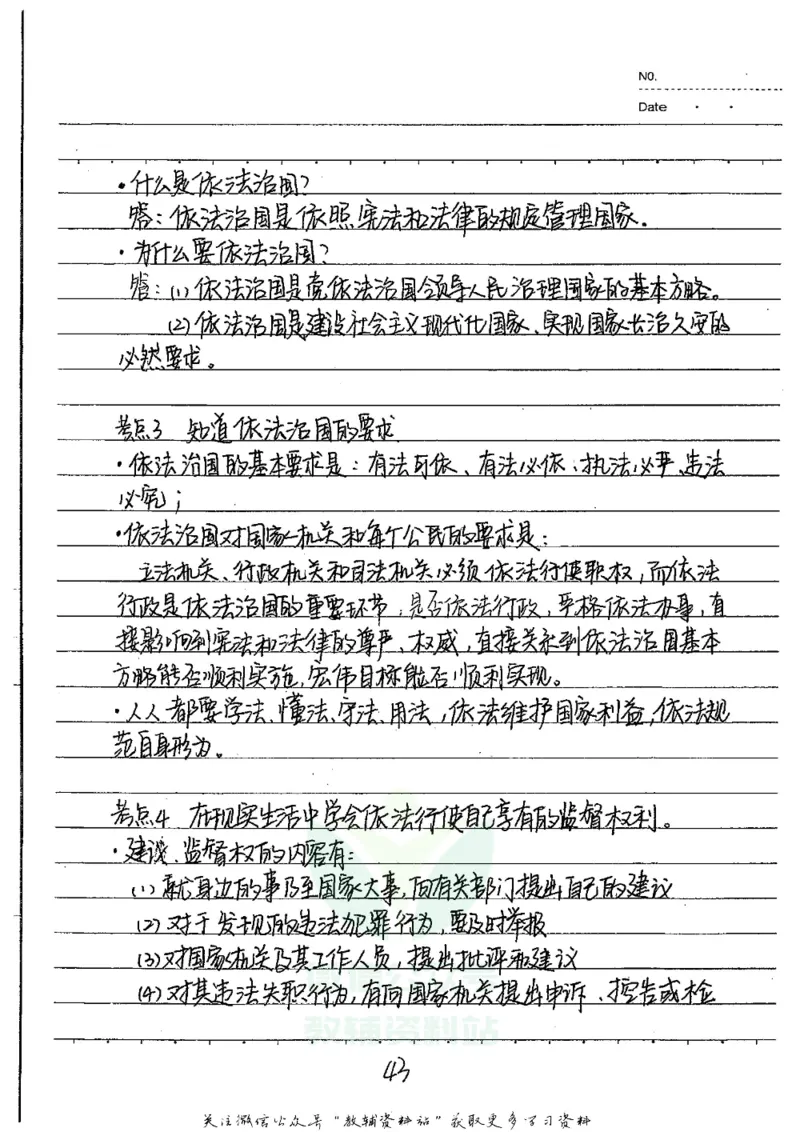 NO.
Date
·什么是依法治国?
答:依法治国是依照宪法和法律的规定管理国家。
·为什么要依法治国?
答:(1)依法治国是党依法治国领导人民治理国家的基本方略。
(2)依法治国是建设社会主义现代化国家、实现国家长治久安的
必然要求。
考点3 知道依法治国的要求
·依法治国的基本要求是:有法可依、有法必依、执法必严、违法
必究;
·依法治国对国家机关和每个公民的要求是:
立法机关、行政机关和司法机关必须依法行使职权,而依法
行政是依法治国的重要环节,是否依法行政,严格依法办事,直
接影响到宪法和法律的尊严、权威,直接关系到依法治国基本
方略能否顺利实施,宏伟目标能否顺利实现。
·人人都要学法、懂法、守法、用法,依法维护国家利益,依法规
范自身形为。
考点4 在现实生活中学会依法行使自己享有的监督权利。
·建议、监督权的内容有:
(1)就身边的事乃至国家大事,向有关部门提出自己的建议
(2)对于发现的违法犯罪行为,要及时举报
(3)对国家机关及其工作人员,提出批评和建议
(4)对其违法失职行为,有向国家机关提出申诉、控告或检
教辅资料站
43
关注微信公众号"教辅资料站"获取更多学习资料